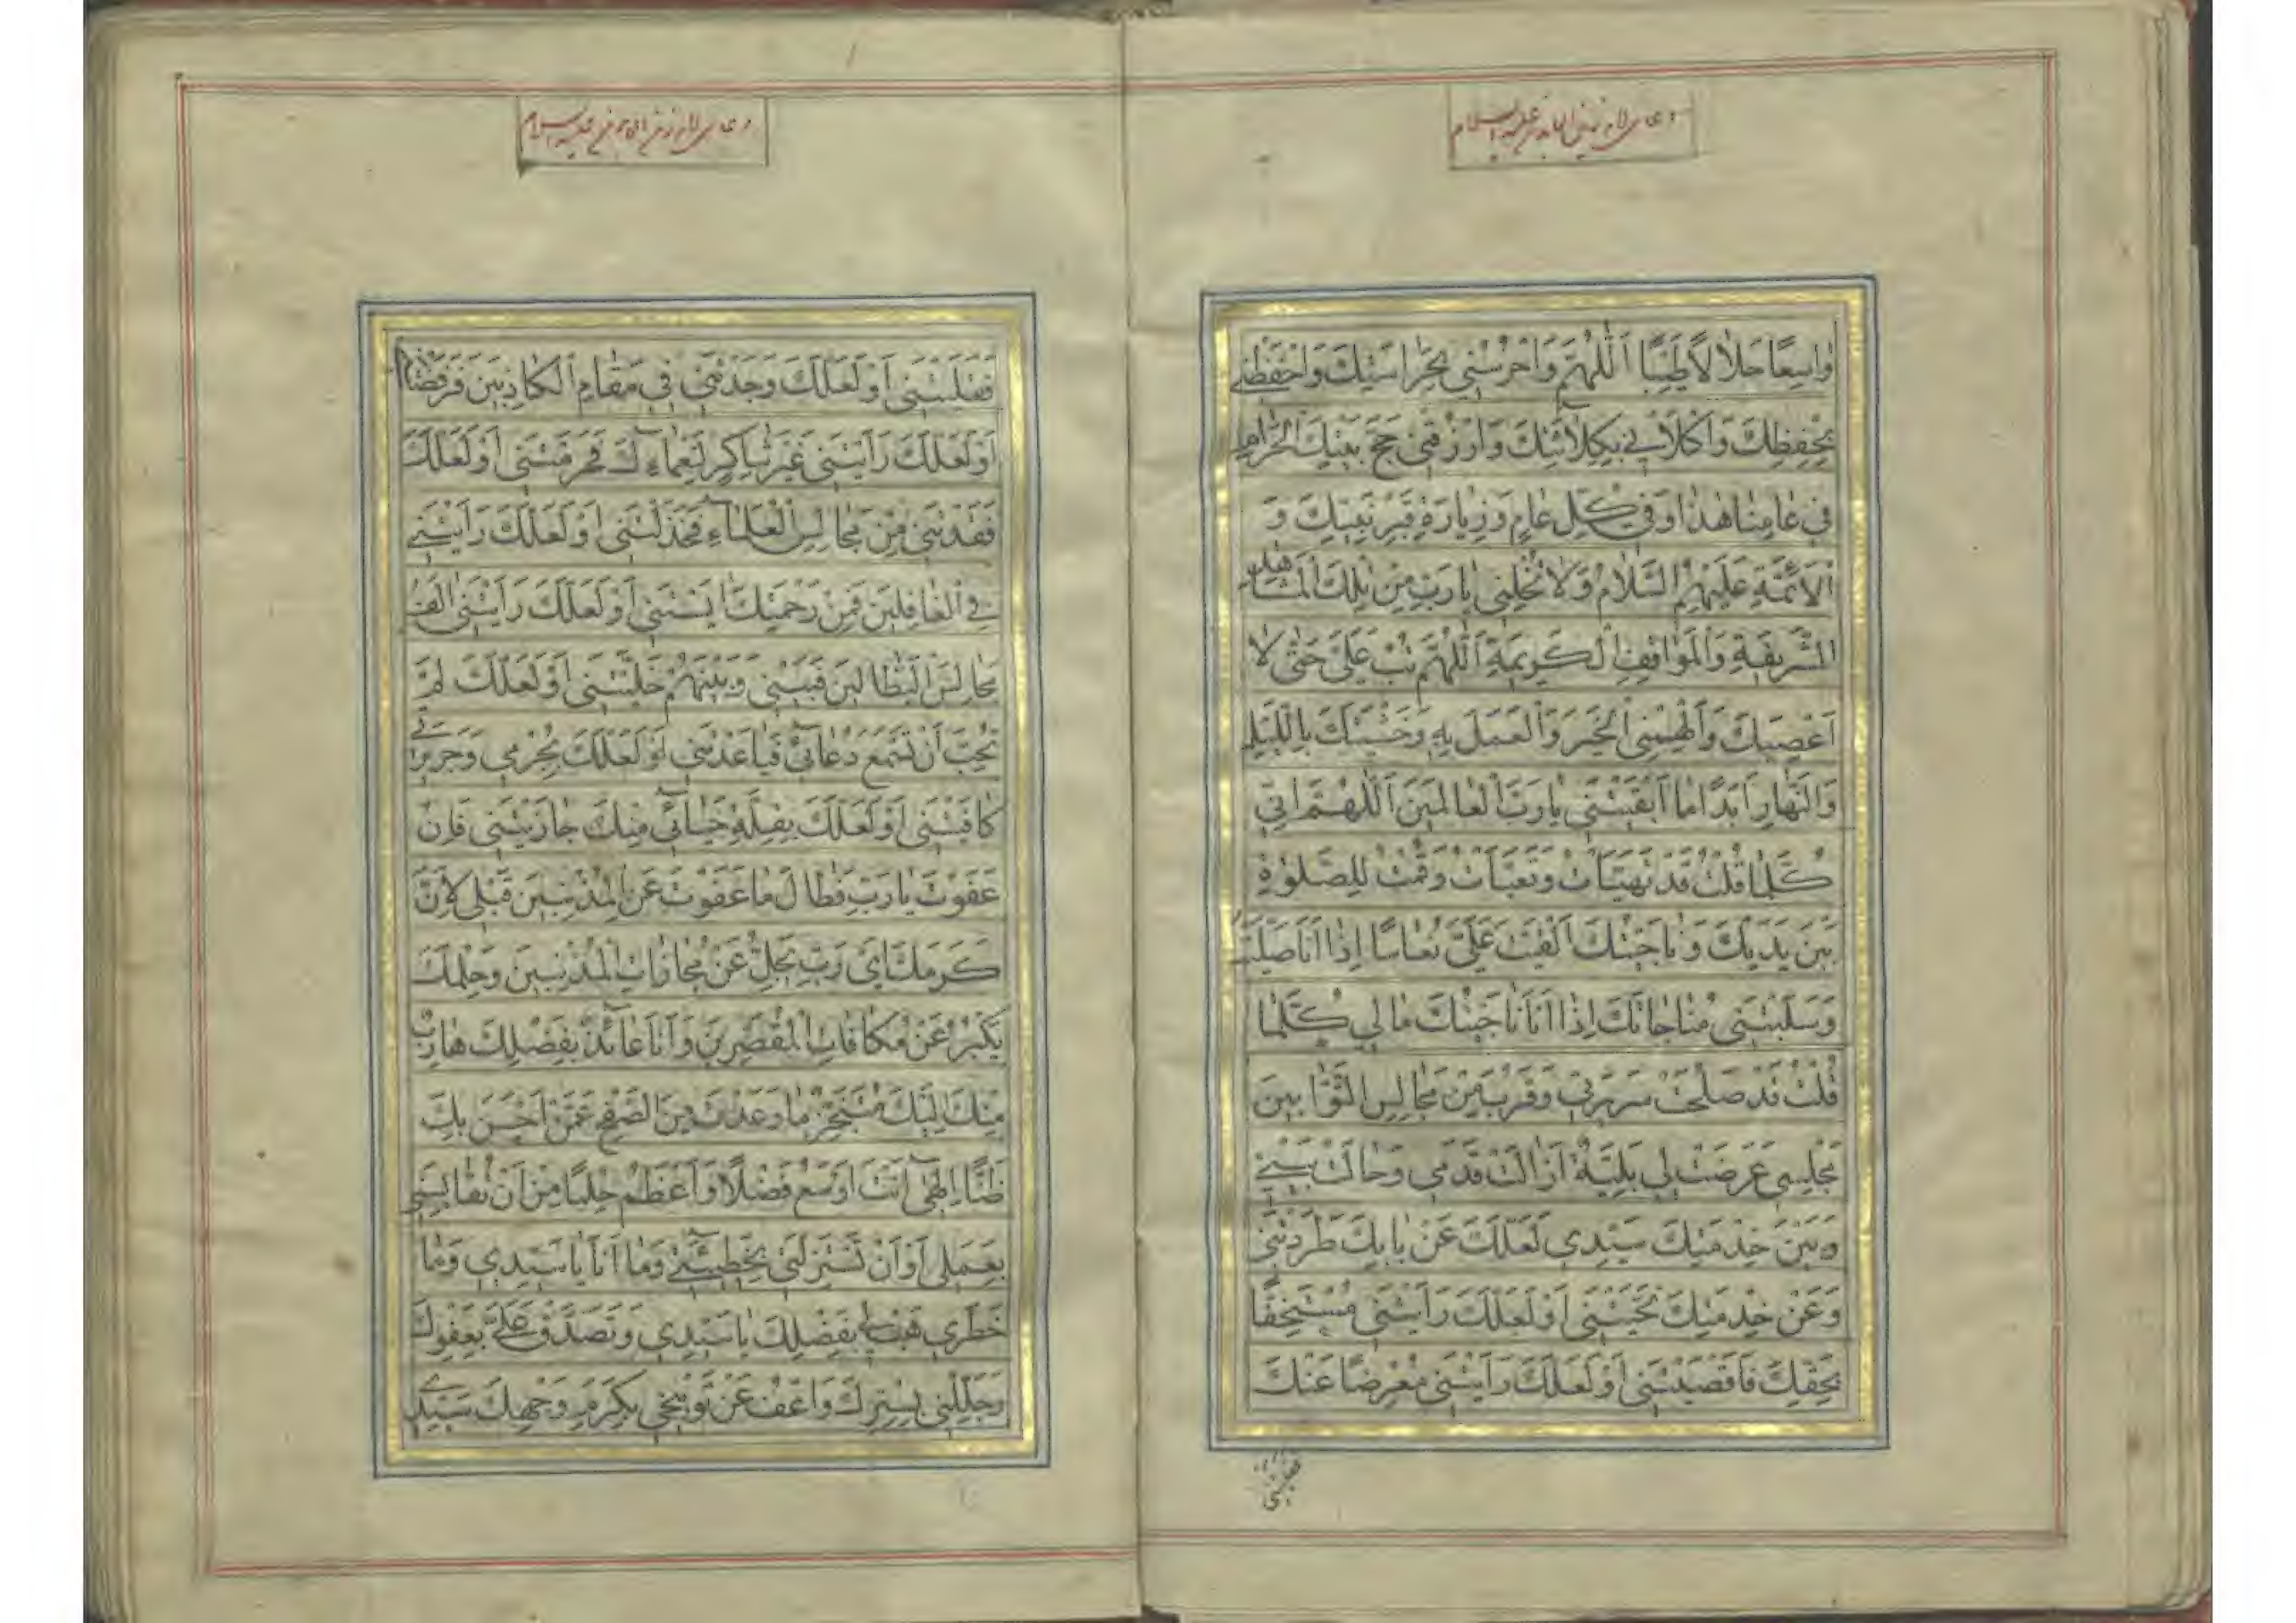 دعای امام زین العابدین علیه السلام
وٰاسِعًا حَلٰالًا طَيِّبًا اَللّٰهُمَّ وَاحْرُسْنِي بِحَرٰاسَتِكَ وَاحْفَظْنِي
بِحِفْظِكَ وَاكْلَأْنِي بِكِلٰائَتِكَ وَارْزُقْنِي حَجَّ بَيْتِكَ الْحَرٰامِ
فِي عٰامِنٰا هٰذٰا وَفِي كُلِّ عٰامٍ وَزِيٰارَةَ قَبْرِ نَبِيِّكَ وَ
الْاَئِمَّةِ عَلَيْهِمُ السَّلٰامُ وَلٰا تُخْلِنِي يٰا رَبِّ مِنْ تِلْكَ الْمَشٰاهِدِ
الشَّرِيفَةِ وَالْمَوٰاقِفِ الْكَرِيمَةِ اَللّٰهُمَّ تُبْ عَلَيَّ حَتّٰى لٰا
اَعْصِيَكَ وَاَلْهِمْنِي الْخَيْرَ وَالْعَمَلَ بِهِ وَخَشْيَتَكَ بِاللَّيْلِ
وَالنَّهٰارِ اَبَدًا مٰا اَبْقَيْتَنِي يٰا رَبَّ الْعٰالَمِينَ اَللّٰهُمَّ اِنِّي
كُلَّمٰا قُلْتُ قَدْ تَهَيَّأْتُ وَتَعَبَّأْتُ وَقُمْتُ لِلصَّلوٰةِ
بَيْنَ يَدَيْكَ وَنٰاجَيْتُكَ اَلْقَيْتَ عَلَيَّ نُعٰاسًا اِذٰا اَنَا صَلَّيْتُ
وَسَلَبْتَنِي مُنٰاجٰاتَكَ اِذٰا اَنَا نٰاجَيْتُكَ مٰا لِي كُلَّمٰا
قُلْتُ قَدْ صَلُحَتْ سَرِيرَتِي وَقَرُبَ مِنْ مَجٰالِسِ التَّوّٰابِينَ
مَجْلِسِي عَرَضَتْ لِي بَلِيَّةٌ اَزٰالَتْ قَدَمِي وَحٰالَتْ بَيْنِي
وَبَيْنَ خِدْمَتِكَ سَيِّدِي لَعَلَّكَ عَنْ بٰابِكَ طَرَدْتَنِي
وَعَنْ خِدْمَتِكَ نَحَّيْتَنِي اَوْ لَعَلَّكَ رَاَيْتَنِي مُسْتَخِفًّا
بِحَقِّكَ فَاَقْصَيْتَنِي اَوْ لَعَلَّكَ رَاَيْتَنِي مُعْرِضًا عَنْكَ
فقلیتنی
دعای امام زین العابدین علیه السلام
فَقَلَيْتَنِي اَوْ لَعَلَّكَ وَجَدْتَنِي فِي مَقٰامِ الْكٰاذِبِينَ فَرَفَضْتَنِي
اَوْ لَعَلَّكَ رَاَيْتَنِي غَيْرَ شٰاكِرٍ لِنَعْمٰائِكَ فَحَرَمْتَنِي اَوْ لَعَلَّكَ
فَقَدْتَنِي مِنْ مَجٰالِسِ الْعُلَمٰاءِ فَخَذَلْتَنِي اَوْ لَعَلَّكَ رَاَيْتَنِي
فِي الْغٰافِلِينَ فَمِنْ رَحْمَتِكَ اٰيَسْتَنِي اَوْ لَعَلَّكَ رَاَيْتَنِي اٰلِفَ
مَجٰالِسَ الْبَطّٰالِينَ فَبَيْنِي وَبَيْنَهُمْ خَلَّيْتَنِي اَوْ لَعَلَّكَ لَمْ
تُحِبَّ اَنْ تَسْمَعَ دُعٰائِي فَبٰاعَدْتَنِي اَوْ لَعَلَّكَ بِجُرْمِي وَجَرِيرَتِي
كٰافَيْتَنِي اَوْ لَعَلَّكَ بِقِلَّةِ حَيٰائِي مِنْكَ جٰازَيْتَنِي فَاِنْ
عَفَوْتَ يٰا رَبِّ فَطٰالَ مٰا عَفَوْتَ عَنِ الْمُذْنِبِينَ قَبْلِي لِاَنَّ
كَرَمَكَ اَيْ رَبِّ يَجِلُّ عَنْ مُجٰازٰاتِ الْمُذْنِبِينَ وَحِلْمَكَ
يَكْبُرُ عَنْ مُكٰافٰاتِ الْمُقَصِّرِينَ وَاَنَا عٰائِذٌ بِفَضْلِكَ هٰارِبٌ
مِنْكَ اِلَيْكَ مُتَنَجِّزٌ مٰا وَعَدْتَ مِنَ الصَّفْحِ عَمَّنْ اَحْسَنَ بِكَ
ظَنًّا اِلٰهِي اَنْتَ اَوْسَعُ فَضْلًا وَاَعْظَمُ حِلْمًا مِنْ اَنْ تُقٰايِسَنِي
بِعَمَلِي اَوْ اَنْ تَسْتَزِلَّنِي بِخَطِيئَتِي وَمٰا اَنَا يٰا سَيِّدِي وَمٰا
خَطَرِي هَبْنِي بِفَضْلِكَ يٰا سَيِّدِي وَتَصَدَّقْ عَلَيَّ بِعَفْوِكَ
وَجَلِّلْنِي بِسِتْرِكَ وَاعْفُ عَنْ تَوْبِيخِي بِكَرَمِ وَجْهِكَ سَيِّدِي